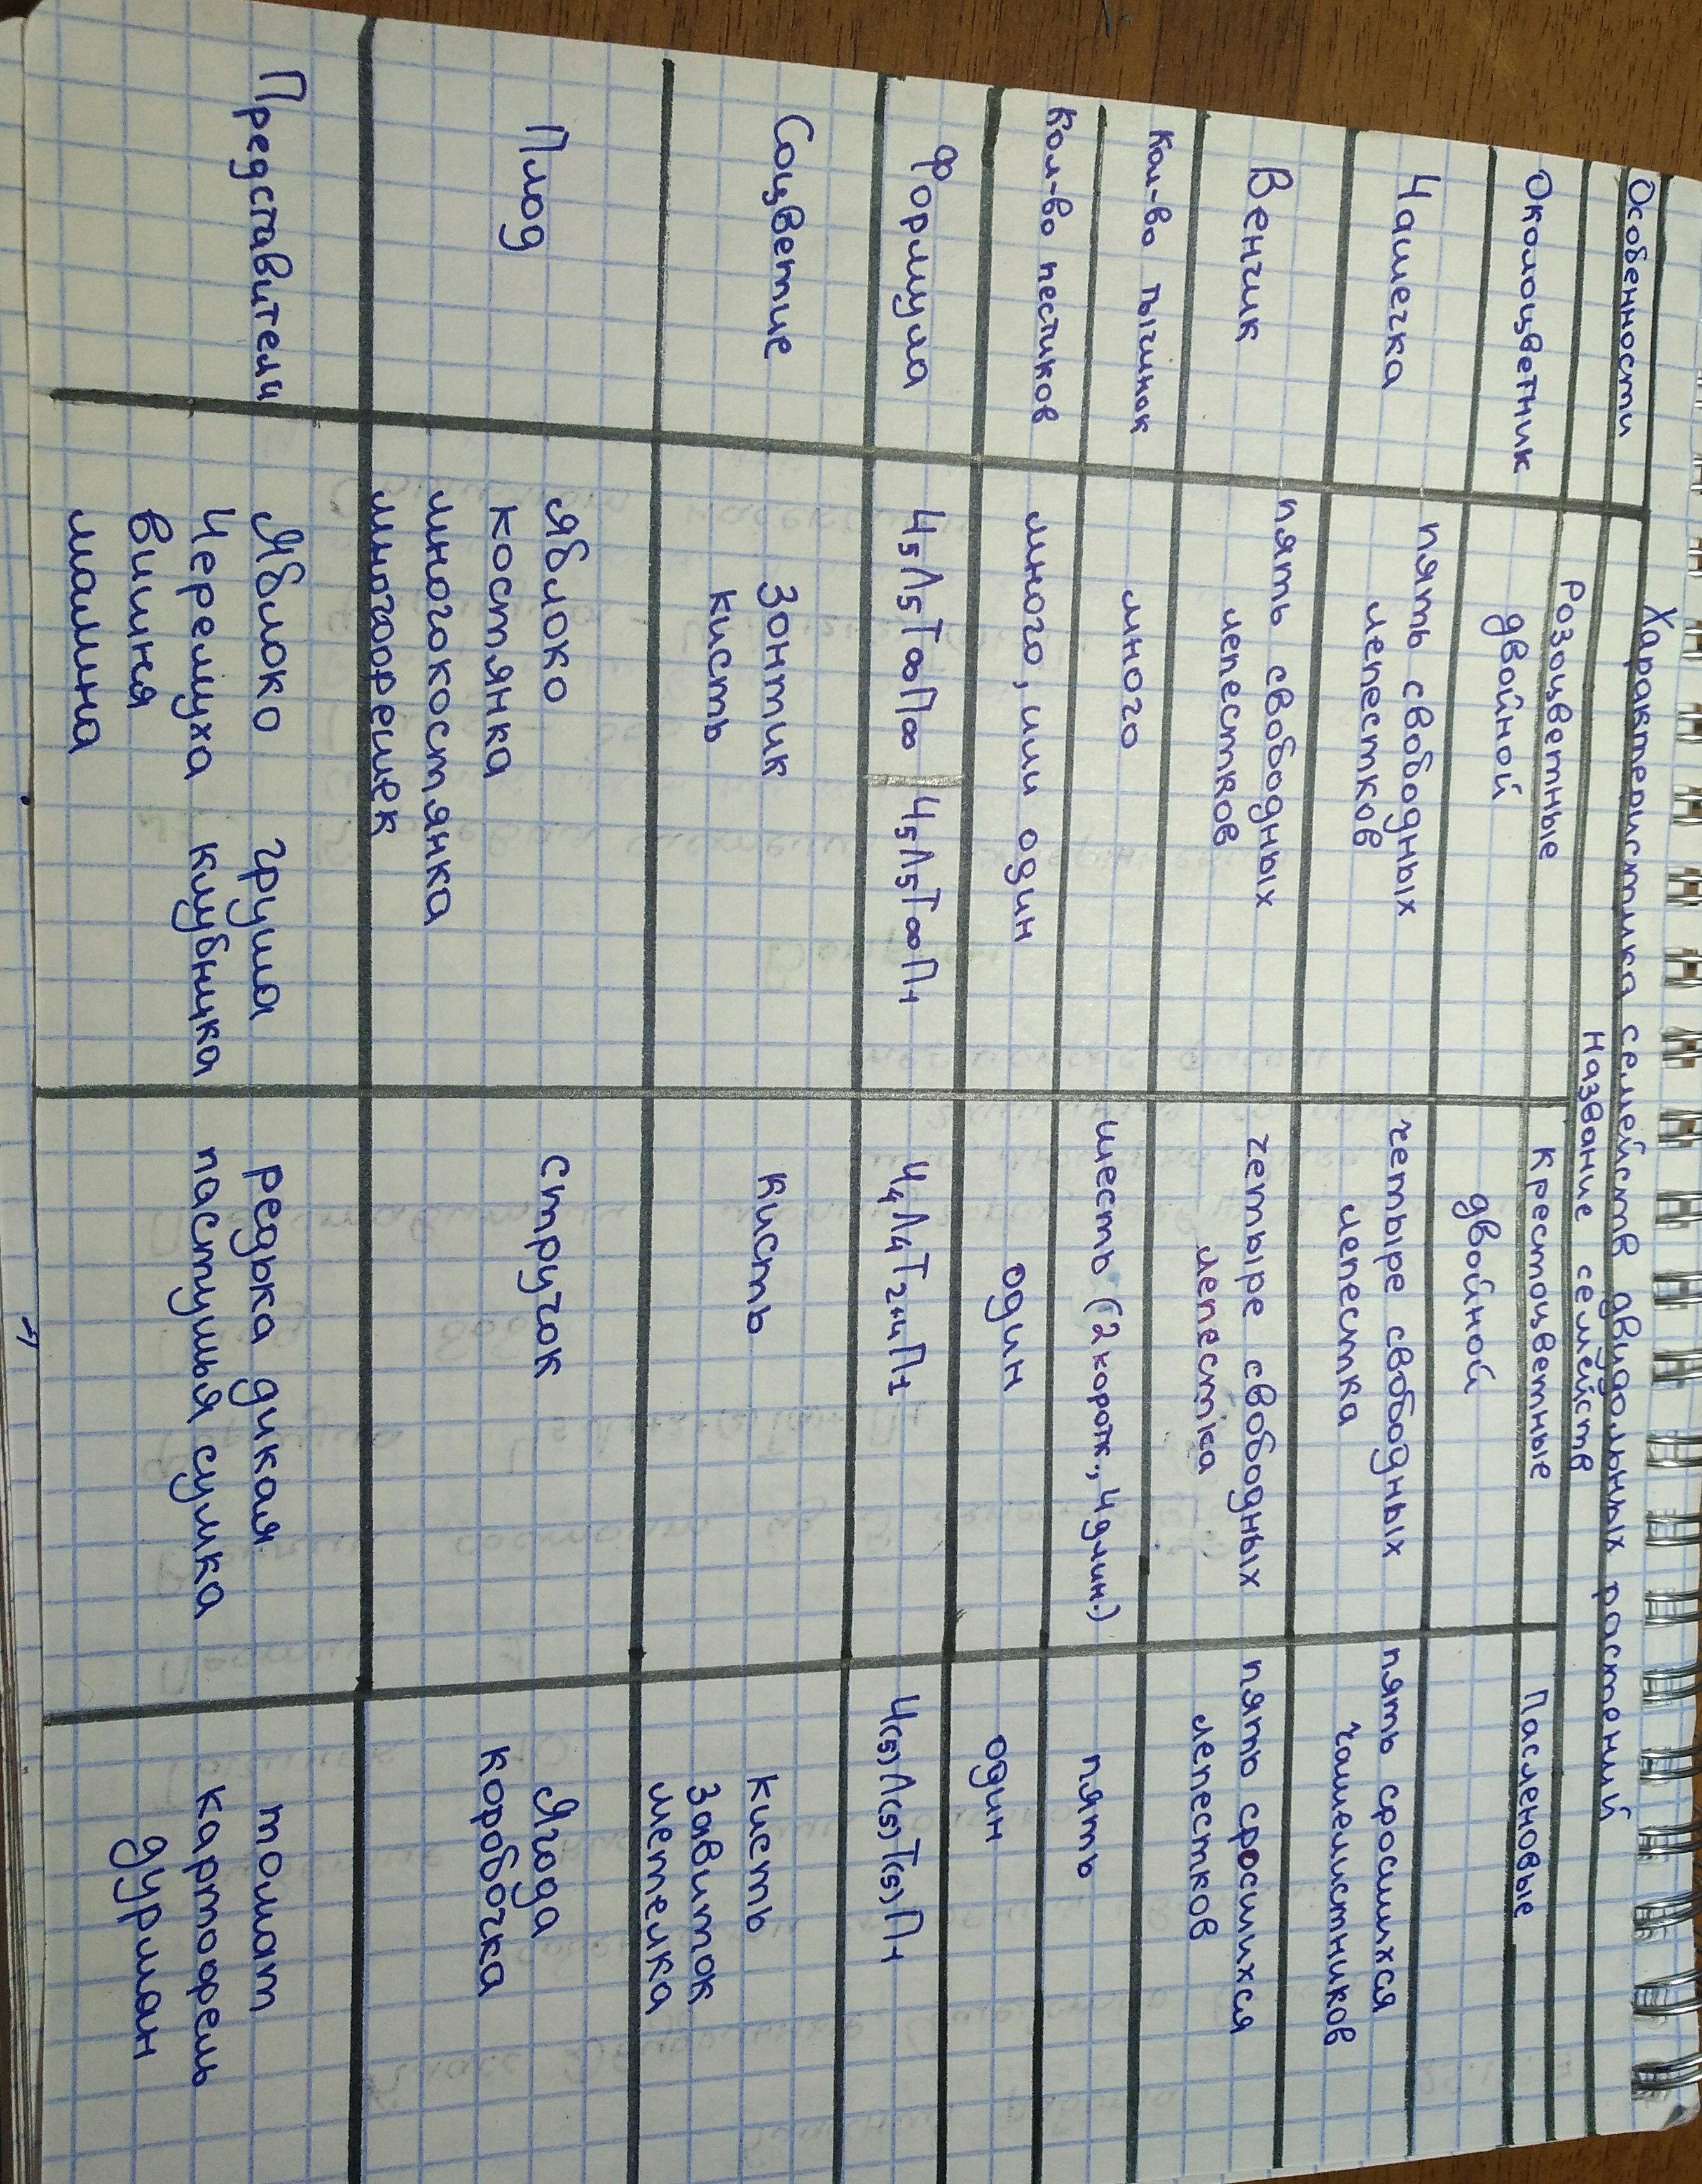 Характеристика семейств двудольных растений
Особенности
Название семейств
Розоцветные
Крестоцветные
Пасленовые
Околоцветник
двойной
двойной
Чашечка
пять свободных
лепестков
четыре свободных
лепестка
пять сросшихся
чашелистников
Венчик
пять свободных
лепестков
четыре свободных
лепестка
пять сросшихся
лепестков
Кол-во тычинок
много
шесть (2 коротк., 4 длин.)
пять
Кол-во пестиков
много, или один
один
один
Формула
Ч₅Л₅Т∞П∞
Ч₅Л₅Т∞П₁
Ч₄Л₄Т₂₊₄П₁
Ч₍₅₎Л₍₅₎Т₍₅₎П₁
Соцветие
зонтик
кисть
кисть
кисть
завиток
метелка
Плод
яблоко
костянка
многокостянка
многоорешек
стручок
Ягода
коробочка
Представители
Яблоко груша
Черемуха клубника
вишня
малина
редька дикая
пастушья сумка
томат
картофель
дурман